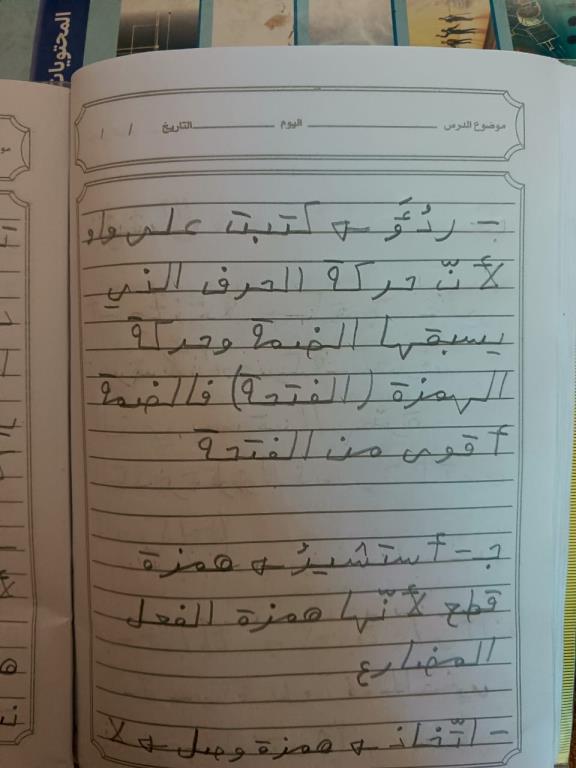 المحتويات
موضوع الدرس اليوم التاريخ / /
- ردُؤَ → كتبت على واو
لأنّ حركة الحرف الذي
يسبقها الضمة وحركة
الهمزة (الفتحة) فالضمة
أقوى من الفتحة
جـ - أستشيرُ → همزة
قطع لأنّها همزة الفعل
المضارع
- اتّخاذ → همزة وصل → لا